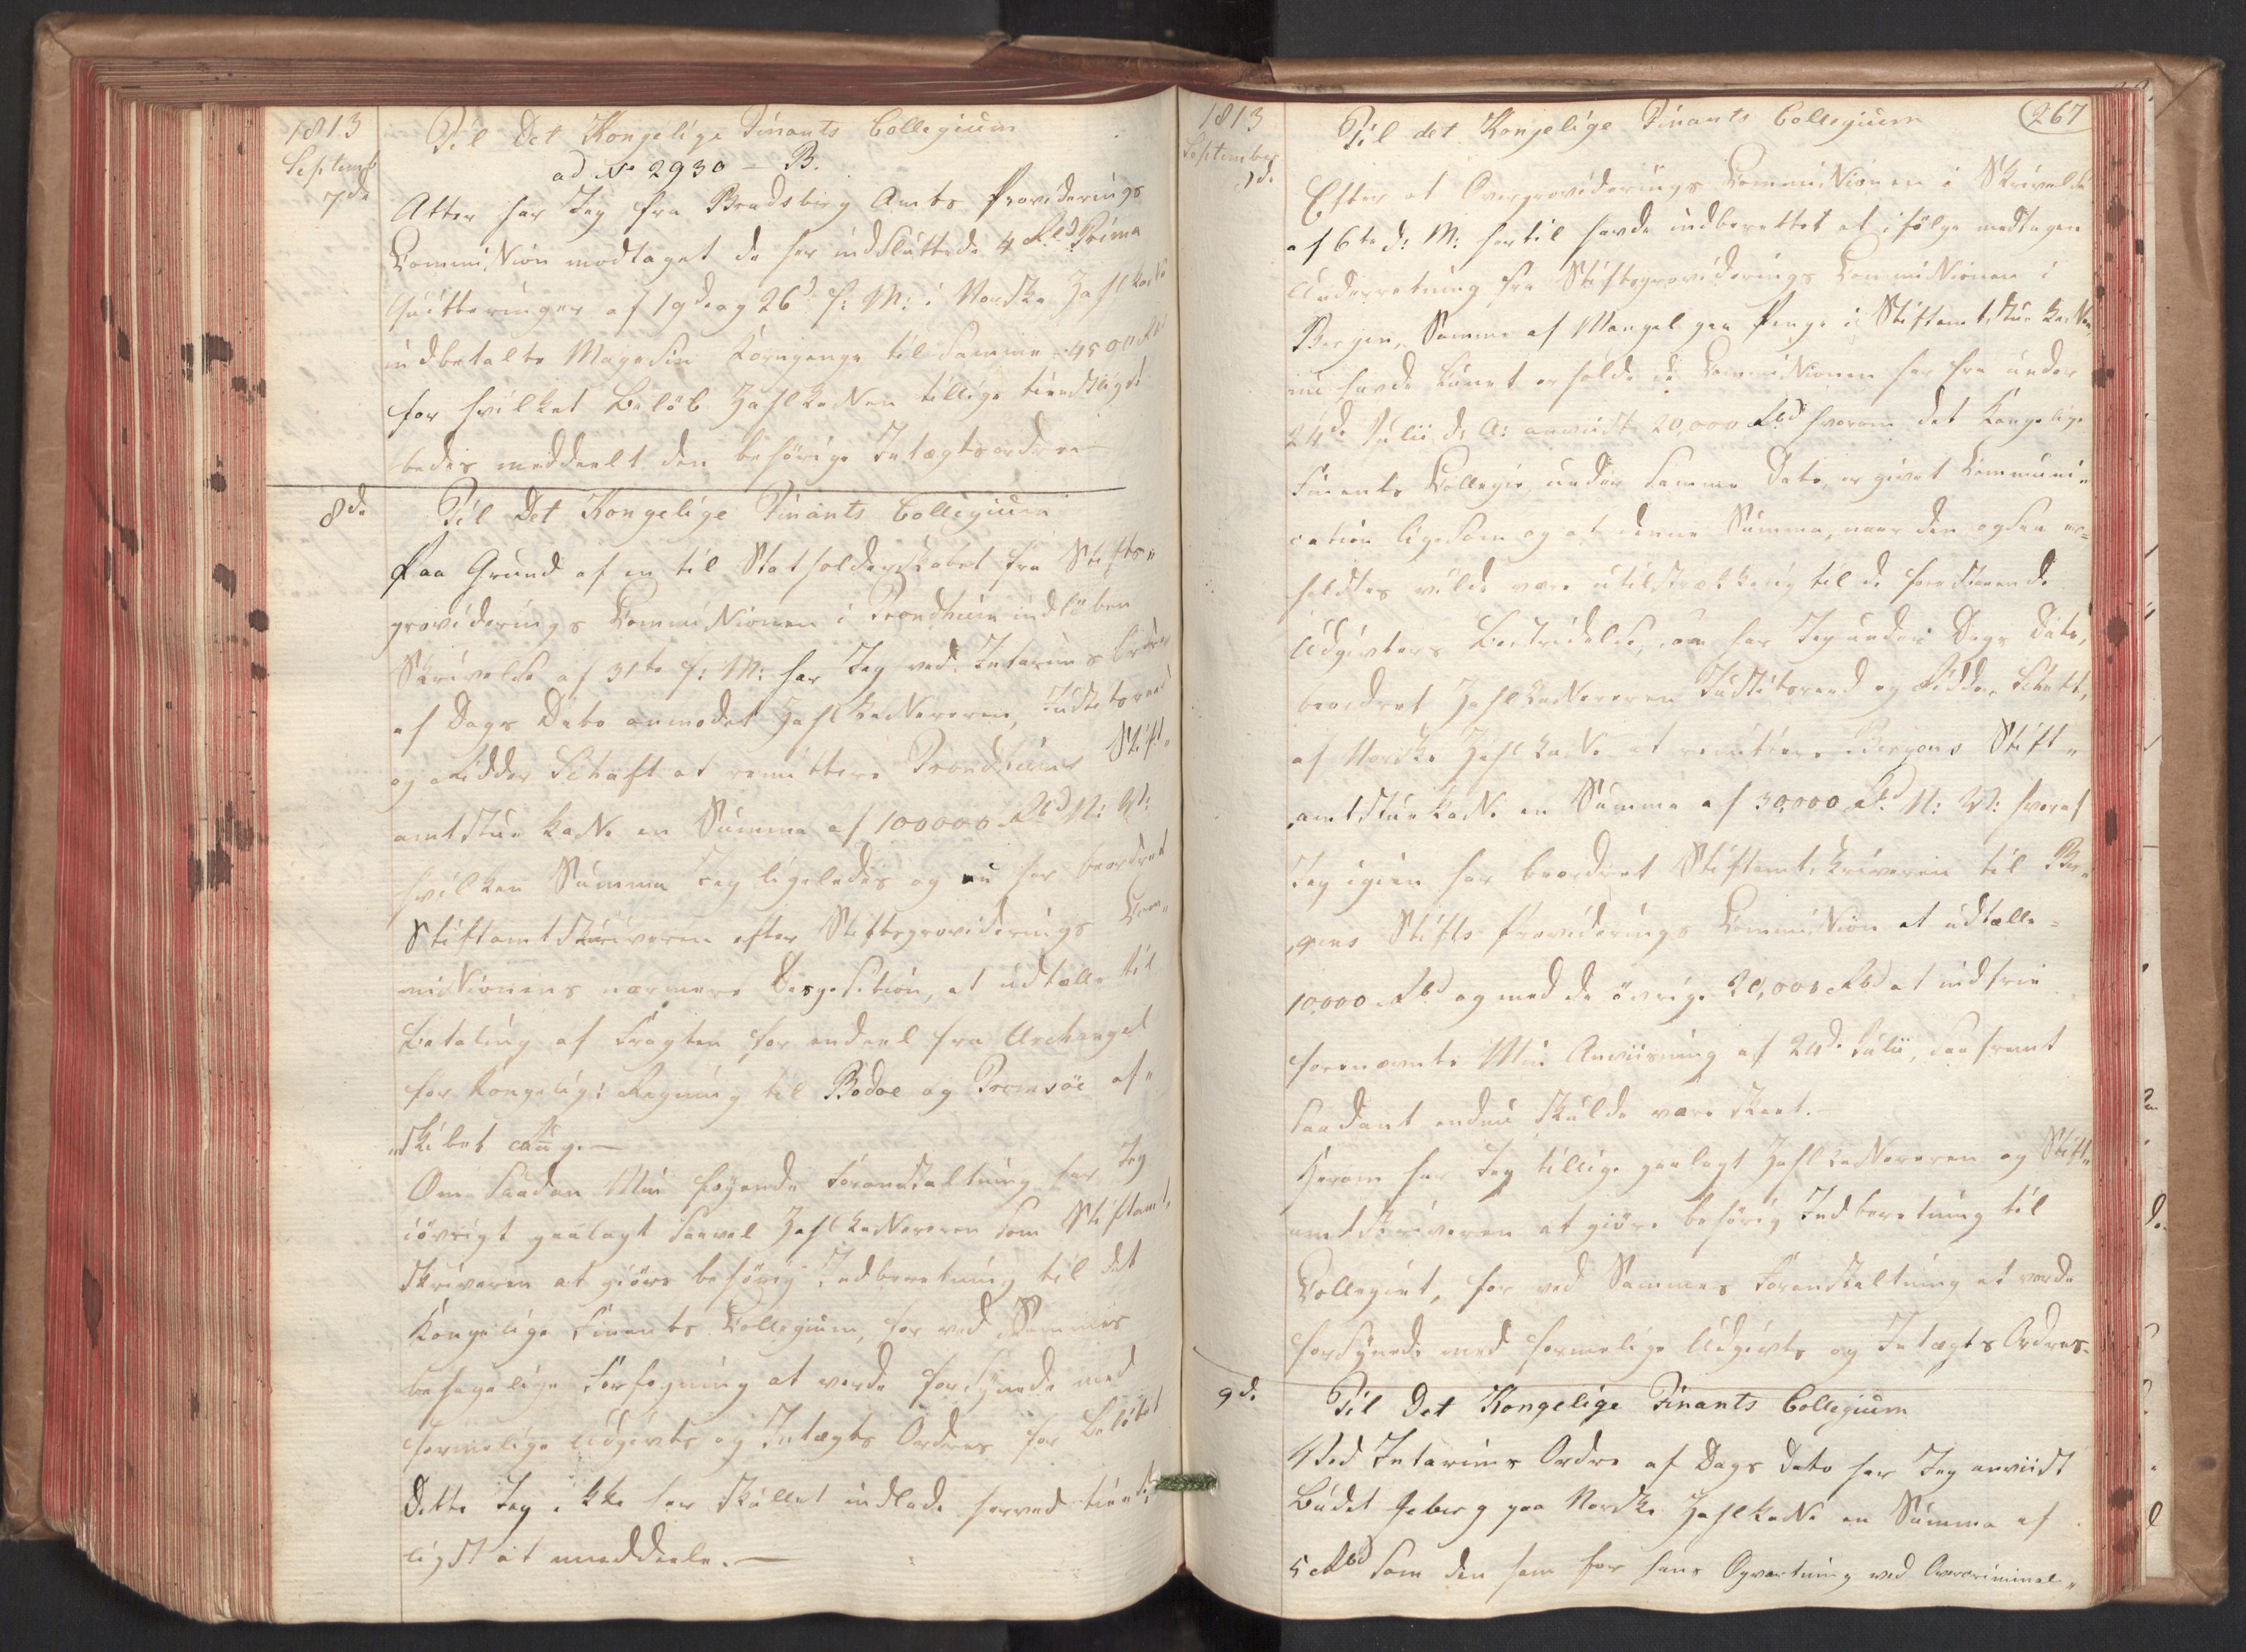 1813
Septemb
7de
Til Det Kongelige Finants Collegium
ad No 2930 - B.
Atter har Jeg fra Bradsberg Amts Providerings
Commission modtaget de her indsluttede 4 Rbd Prima
Quitteringer af 19de og 26de f: M: i Norske Zahlkasse
indbetalte Magasin Kornpenge til Summa 4500 Rbd
for hvilket Beløb Zahlkassen tillige tienstligst
bedes meddeelt den behörige Indtægtsordre
8de
Til Det Kongelige Finants Collegium
Paa Grund af en til Statholderskabet fra Stifts"
providerings Commissionen i Trondhiem indløben
Skrivelse af 31te f: M: har Jeg ved Interims Ordre
af Dags Dato anmodet Zahlkasserer, Justitsraad
og Ridder Schäft at remittere Trondhiems Stift"
amtstue kasse en Summa af 100000 Rbd N: V:
hvilken Summa Jeg ligeledes og nu har beordret
Stiftamtskriveren efter Stiftsproviderings Com"
missionens nærmere Disposition, at udtælle til
Betaling af Fragten for endeel fra Archangel
for Kongelig: Regning til Bodøe og Tromsöe af"
"skibet Rug. —
Om saadan Min föyende Foranstaltning har Jeg
iövrigt paalagt saavel Zahlkassereren som Stiftamt"
skriveren at giöre behörig Indberetning til det
Kongelige Finants Collegium, for ved Sammes
behagelige Forföyning at vorde forsynede med
formelige Udgivts og Indtægts Ordres for Beløbet
Dette Jeg ikke har skullet undlade herved tienst"
ligst at meddeele. —
1813
September
8de
267
Til det Kongelige Finants Collegium
Efter at Overproviderings Commissionen i Skrivelse
af 6te d: M: hertil havde indberettet at ifölge modtagen
Underretning fra Stiftsproviderings Commissionen i
Bergen, Samme af Mangel paa Penge i Stiftamtstue kassen,
ei havde kunnet erholde de Commissionen her fra under
24de Julii d: A: anviiste 20,000 Rbd hvorom det Kongelige
Finants Collegie under samme Dato, er givet Communi"
cation ligesom og at denne Summa, naar den ogsaa er=
holdtes vilde være utilstrækkelig til de forestaaende
Udgivters Bestridelse, saa har Jeg under Dags Dato,
beordret Zahlkassereren Justitsraad og Ridder Schäft,
af Norske Zahlkasse at remittere Bergens Stift"
amtstuekasse en Summa af 30,000 Rbd N: V: hvoraf
Jeg igien har beordret Stiftamtskriveren til Ber"
gens Stifts Providerings Commission at udtælle=
10,000 Rbd og med de övrige 20,000 Rbd at indfrie
fornævnte Min Anviisning af 24de Julii, saafremt
saadant endnu skulde være skeet.
Herom har Jeg tillige paalagt Zahlkassereren og Stift"
amtskriveren at giöre behörig Indberetning til
Collegiet, for ved Sammes Foranstaltning at vorde
forsynede med formelige Udgivts og Indtægts Ordres.
9de
Til Det Kongelige Finants Collegium
Ved Interims Ordre af Dags Dato har Jeg anviist
Budet Seberg paa Norske Zahlkasse en Summa af
5 Rbd som den ham for hans Opvartning ved Overcriminal"